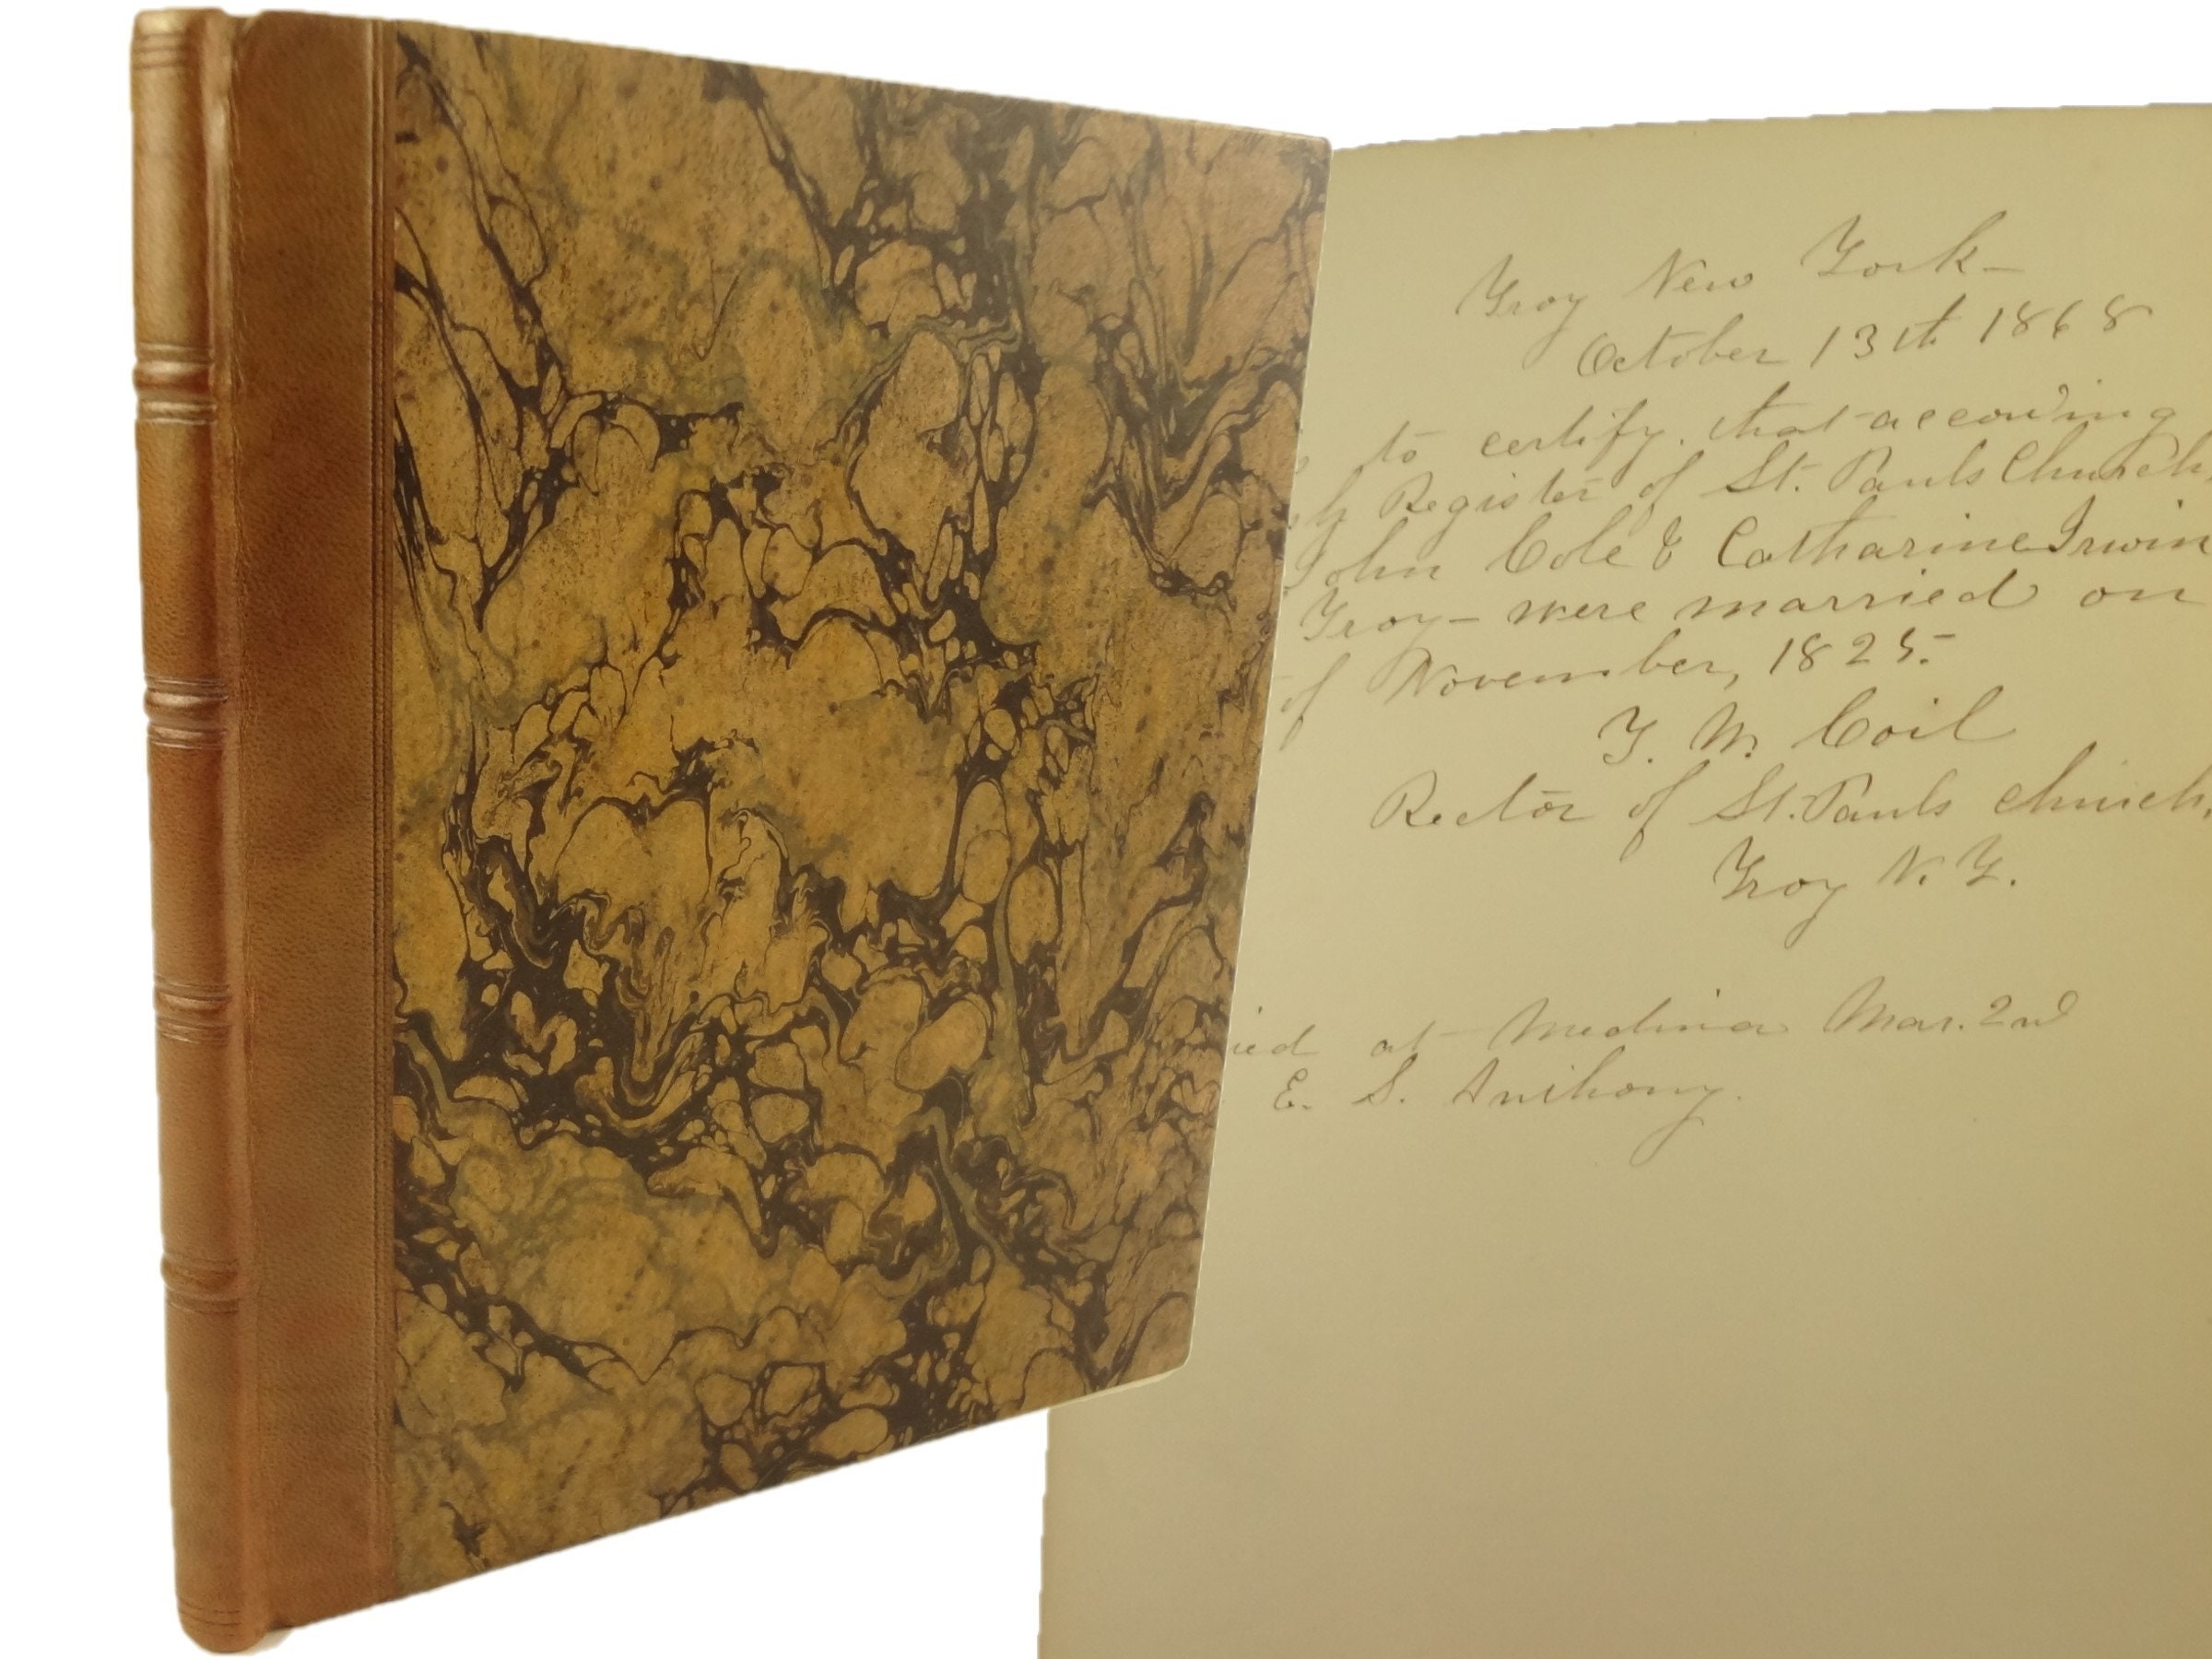 Troy New York -
October 13th 1868
to certify, that according
Register of St. Pauls Church,
John Cole & Catharine Irwin
Troy - were married on
of November, 1825.
T. W. Coil
Rector of St. Pauls Church,
Troy N. Y.
ied at Medina Mar. 2nd
E. S. Anthony.